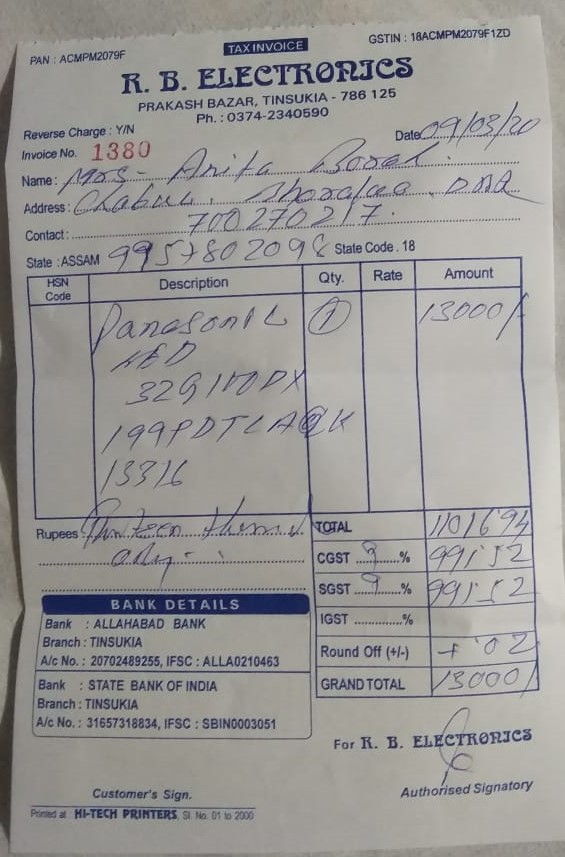 PAN : ACMPM2079F TAX INVOICE GSTIN : 18ACMPM2079F1ZD
R. B. ELECTRONICS
PRAKASH BAZAR, TINSUKIA - 786 125
Ph. : 0374-2340590
Reverse Charge : Y/N Date 09/03/20
Invoice No. 1380
Name : Mrs- Anita Borah.
Address : Chabua.
Contact : 700270217.
State : ASSAM State Code. 18
HSN Code Description Qty. Rate Amount
Panasonic 1 13000/
LED
32G100DX
13316
Rupees Thirteen thousand TOTAL 11016.94
only - CGST 9 % 991.52
SGST 9 % 991.52
IGST ..............%
Round Off (+/-) + .02
GRAND TOTAL 13000/
BANK DETAILS
Bank : ALLAHABAD BANK
Branch : TINSUKIA
A/c No. : 20702489255, IFSC : ALLA0210463
Bank : STATE BANK OF INDIA
Branch : TINSUKIA
A/c No. : 31657318834, IFSC : SBIN0003051
For R. B. ELECTRONICS
Customer's Sign. Authorised Signatory
Printed at HI-TECH PRINTERS, Sl. No. 01 to 2000